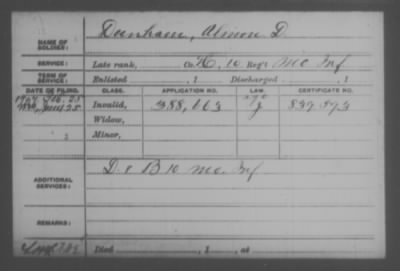 Dunham, Almon D.
NAME OF SOLDIER:
SERVICE: Late rank, Co. H, 10 Reg't Mo Inf
TERM OF SERVICE: Enlisted , 1 Discharged , 1
DATE OF FILING. CLASS. APPLICATION NO. LAW. CERTIFICATE NO.
Invalid, 388,063
Widow,
Minor,
ADDITIONAL SERVICES: D. & B 10 Mo. Inf
REMARKS:
Died , 1 , at